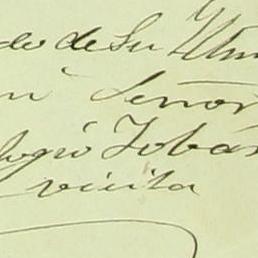 de de Su Ylm
mi Señor
logio Tobar
visita